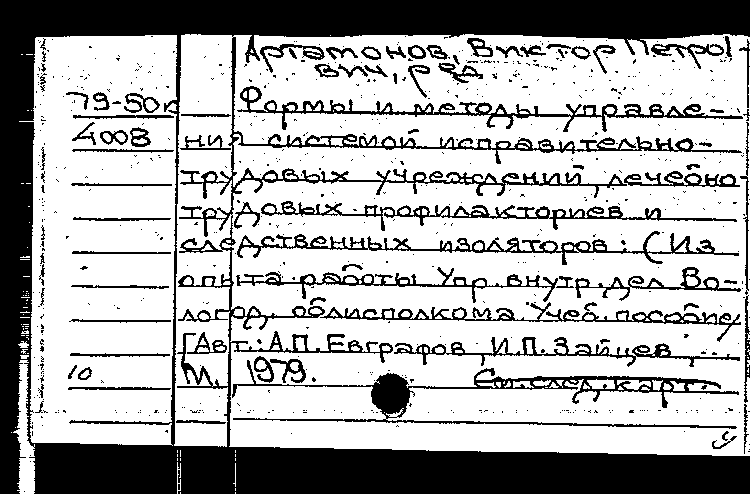 Артамонов, Виктор Петро-
вич, ред.
79-50к Формы и методы управле-
4008 ния системой исправительно-
трудовых учреждений, лечебно-
трудовых профилакториев и
следственных изоляторов: (Из
опыта работы Упр. внутр. дел Во-
логод. облисполкома. Учеб. пособие/
[Авт.: А.П. Евграфов, И.П. Зайцев, ...
10 М., 1979. См. след. карт.